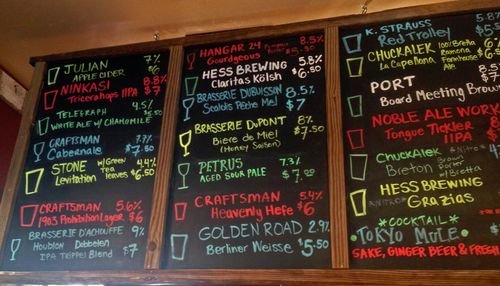 JULIAN 7%
APPLE CIDER $6
NINKASI 8.8%
Tricerahops IIPA $7
TELEGRAPH 4.5%
WHITE ALE w/ CHAMOMILE
CRAFTSMAN 7.7%
Cabernale $7.50
STONE w/Green Tea leaves 4.4%
Levitation $6.50
CRAFTSMAN 5.6%
1903 Prohibition Lager $6
BRASSERIE D'ACHOUFFE 9%
Houblon Dobbelen
IPA Trippel Blend $7
HANGAR 24
Gourdgeous $5
HESS BREWING 5.8%
Claritas Kölsh $6.50
BRASSERIE DUBUISSON 8.5%
Scaldis Pêche Mel $7
BRASSERIE DUPONT 8%
Biere de Miel $7.50
(Honey Saison)
PETRUS 7.3%
AGED SOUR PALE
CRAFTSMAN 5.4%
Heavenly Hefe $6
GOLDEN ROAD 2.9%
Berliner Weisse $5.50
K. STRAUSS
Red Trolley
CHUCKALEK 100% Bretta
La Capellona Farmhouse Ale
PORT
Board Meeting Brown
NOBLE ALE WORKS
Tongue Tickler
IIPA
CHUCKALEK *Nitro*
Breton Brown porter
w/Bretta
HESS BREWING
*NITRO* Grazias
*COCKTAIL*
TOKYO MULE
SAKE, GINGER BEER & FRESH